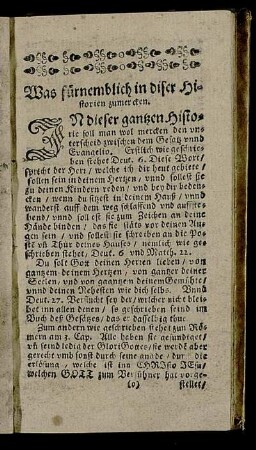 Was fürnemblich in diser Hi-
storien zumercken.
IN dieser gantzen Histo-
rie soll man wol mercken den vn-
terscheid zwischen dem Gesatz vnnd
Evangelio. Erstlich wie geschrie-
ben stehet Deut. 6. Diese Wort/
spricht der Herr/ welche ich dir heut gebiete/
sollen sein in deinem Hertzen/ vnnd sollest sie
zu deinen Kindern reden/ vnd bey dir beden-
cken/ wenn du sitzest in deinem Hauß/ vnnd
wanderst auff dem weg schlaffend vnd auffste-
hend/ vnnd soll est sie zum Zeichen an deine
Hände binden/ das sie stäts vor deinen Au-
gen sein/ vnd sollest sie schreiben an die Po-
sten vñ Thür deines Hauses/ nemlich wie ge-
schrieben stehet/ Deut. 6. vnd Math. 22.
Du solt Gott deinen Herren lieben/ von
gantzem deinem Hertzen/ von gantzer deiner
Seelen/ vnd von gaantzen deinem Gemühte/
vnnd deinen Nehesten wie dich selbs. Vnnd
Deut. 27. Verflucht sey der/ welcher nicht bleibet
inn allen denen/ so geschrieben seind im
Buch deß Gesätzes/ das er dasselbig thue.
Zum andern wie geschrieben stehet zun Rö-
mern am 3. Cap. Alle haben sie gesündiget/
vñ seind ledig der Glori Gottes/ sie werdẽ aber
gerecht vmb sonst durch seine gnade/ durch die
erlösung/ welche ist inn CHRisto JEsu/
welchen GOTT zum Versühner hat vorge-
stellet/